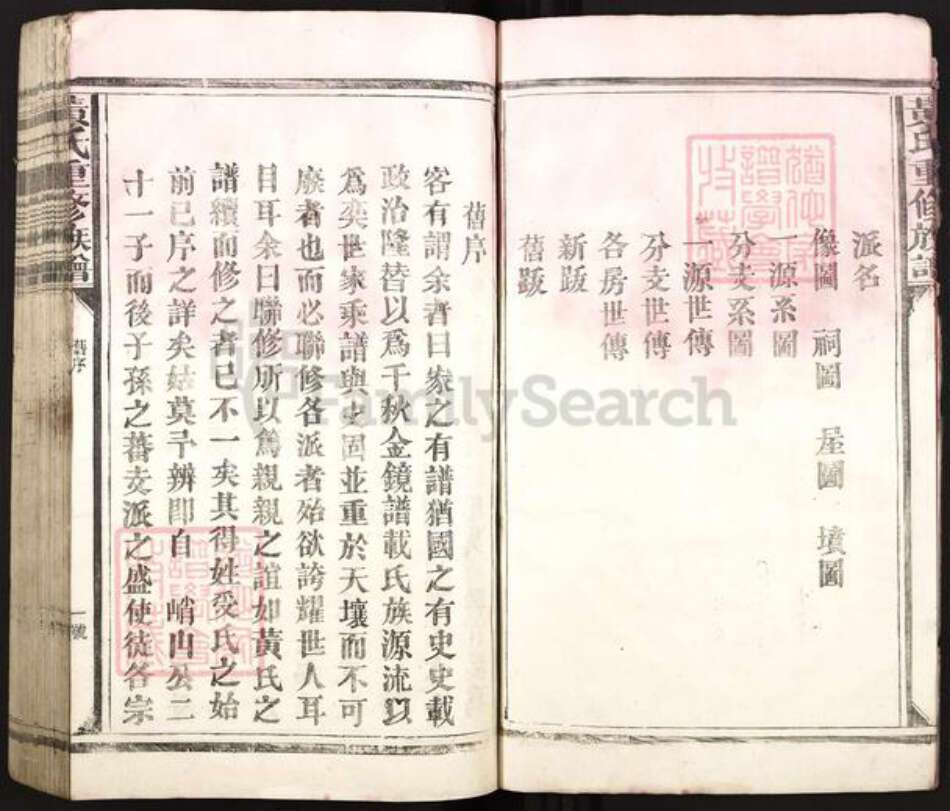 黃氏重修族譜
派名
像圖 祠圖 屋圖 墳圖
一源系圖
分支系圖
一源世傳
分支世傳
各房世傳
新跋
舊跋
舊序
客有謂余者曰家之有譜猶國之有史史載
政治隆替以爲千秋金鏡譜載氏族源流以
爲奕世家乘譜與史固並重於天壤而不可
廢者也而必聯修各派者殆欲誇耀世人耳
目耳余曰聯修所以爲親親之誼如黃氏之
譜續而修之者已不一矣其得姓受氏之始
前已序之詳矣姑莫予辨即自 峭山公二
十一子而後子孫之蕃支派之盛使徒各宗
黃氏重修族譜
舊序
一號
FamilySearch